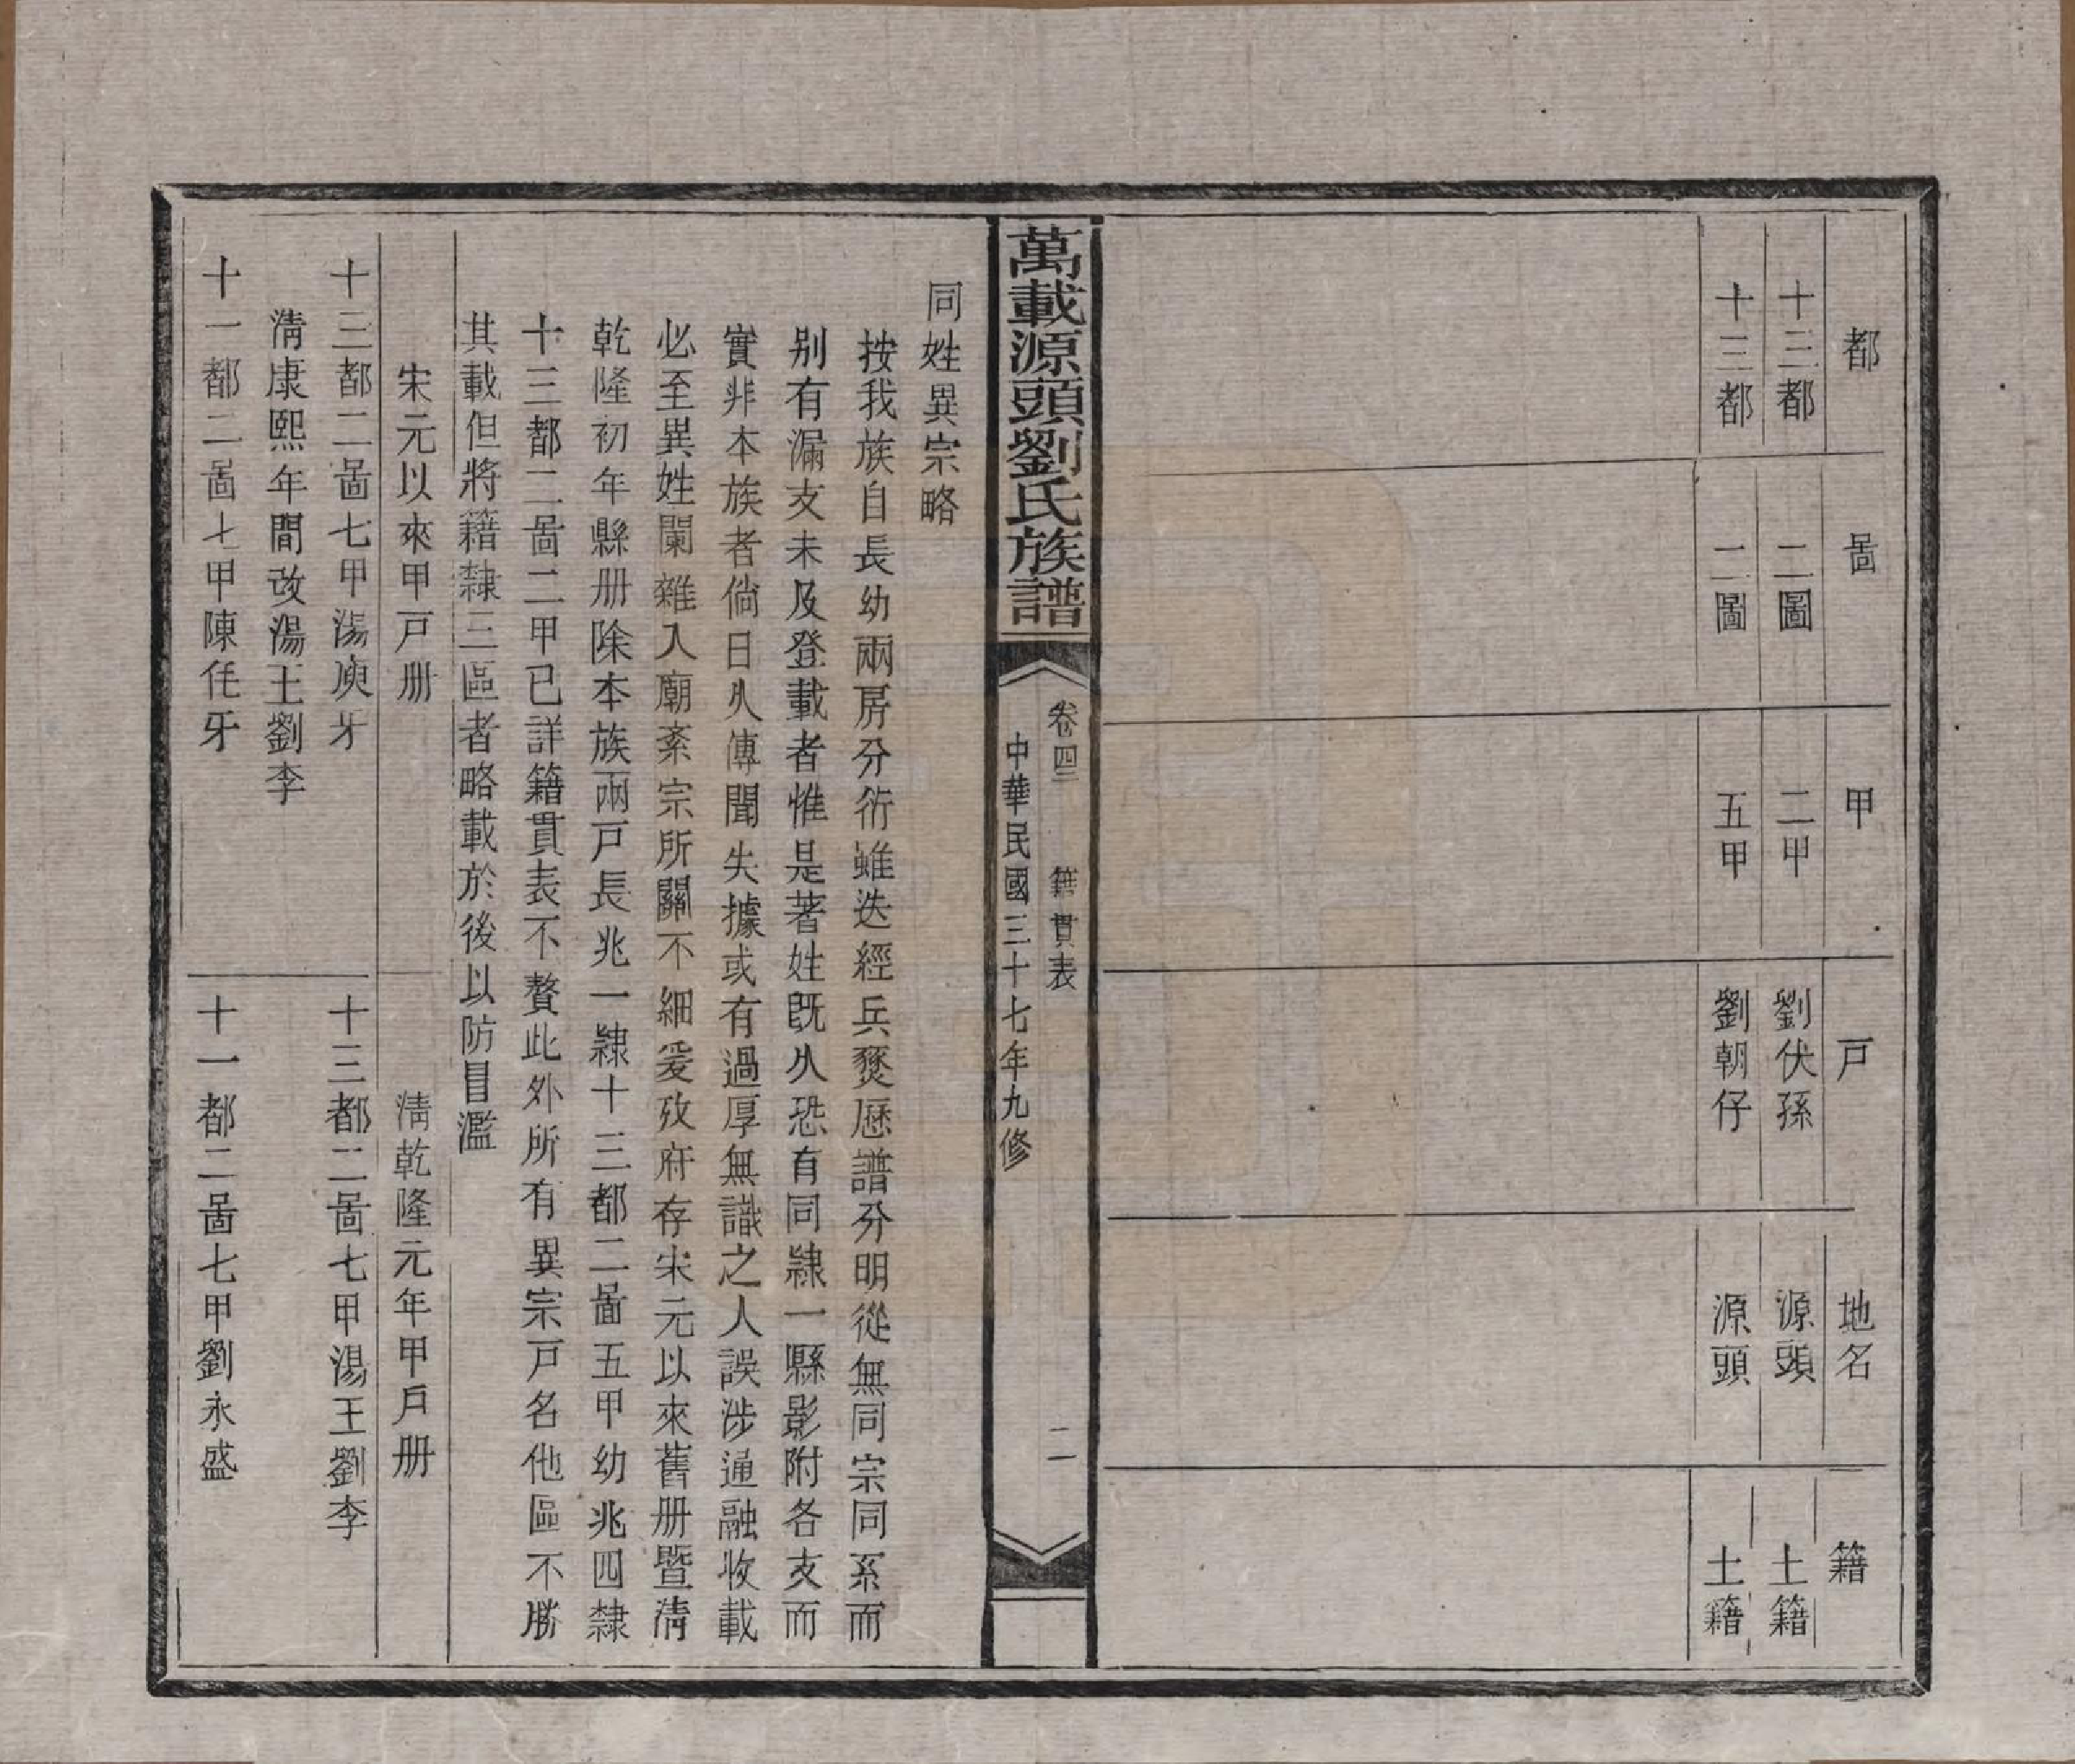 都 啚 甲 戸 地名 籍
十三都 二圖 二甲 劉伏孫 源頭 土籍
十三都 二圖 五甲 劉朝仔 源頭 土籍
萬載源頭劉氏族譜
卷四 籍貫表 二
中華民國三十七年九修
同姓異宗略
按我族自長幼兩房分衍雖迭經兵燹歷譜分明從無同宗同系而
别有漏支未及登載者惟是著姓既久恐有同隸一縣影附各支而
實非本族者倘日久傳聞失據或有過厚無識之人誤涉通融收載
必至異姓闌雜入廟紊宗所關不細爰攷府存宋元以來舊册暨清
乾隆初年縣册除本族兩戸長兆一隸十三都二啚五甲幼兆四隸
十三都二啚二甲已詳籍貫表不贅此外所有異宗戸名他區不勝
其載但將籍隸三區者略載於後以防冒濫
宋元以來甲戸册 清乾隆元年甲戸册
十三都二啚七甲湯庾牙 十三都二啚七甲湯王劉李
清康熙年間改湯王劉李
十一都二啚七甲陳伍牙 十一都二啚七甲劉永盛